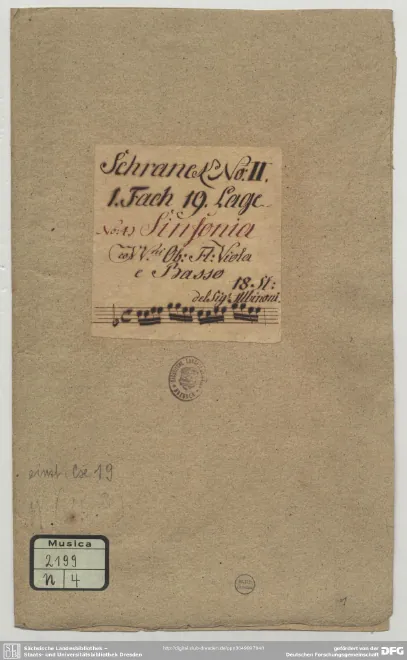 Schranck No: II.
1. Fach 19. Lage
No: 4) Sinfonia
co VV.ni Ob: Fl: Viola
e Basso
18. St:
del Sig.
Cx 19
Musica
2199
n 4
Sächsische Landesbibliothek –
Staats- und Universitätsbibliothek Dresden
gefördert von der
Deutschen Forschungsgemeinschaft
DFG